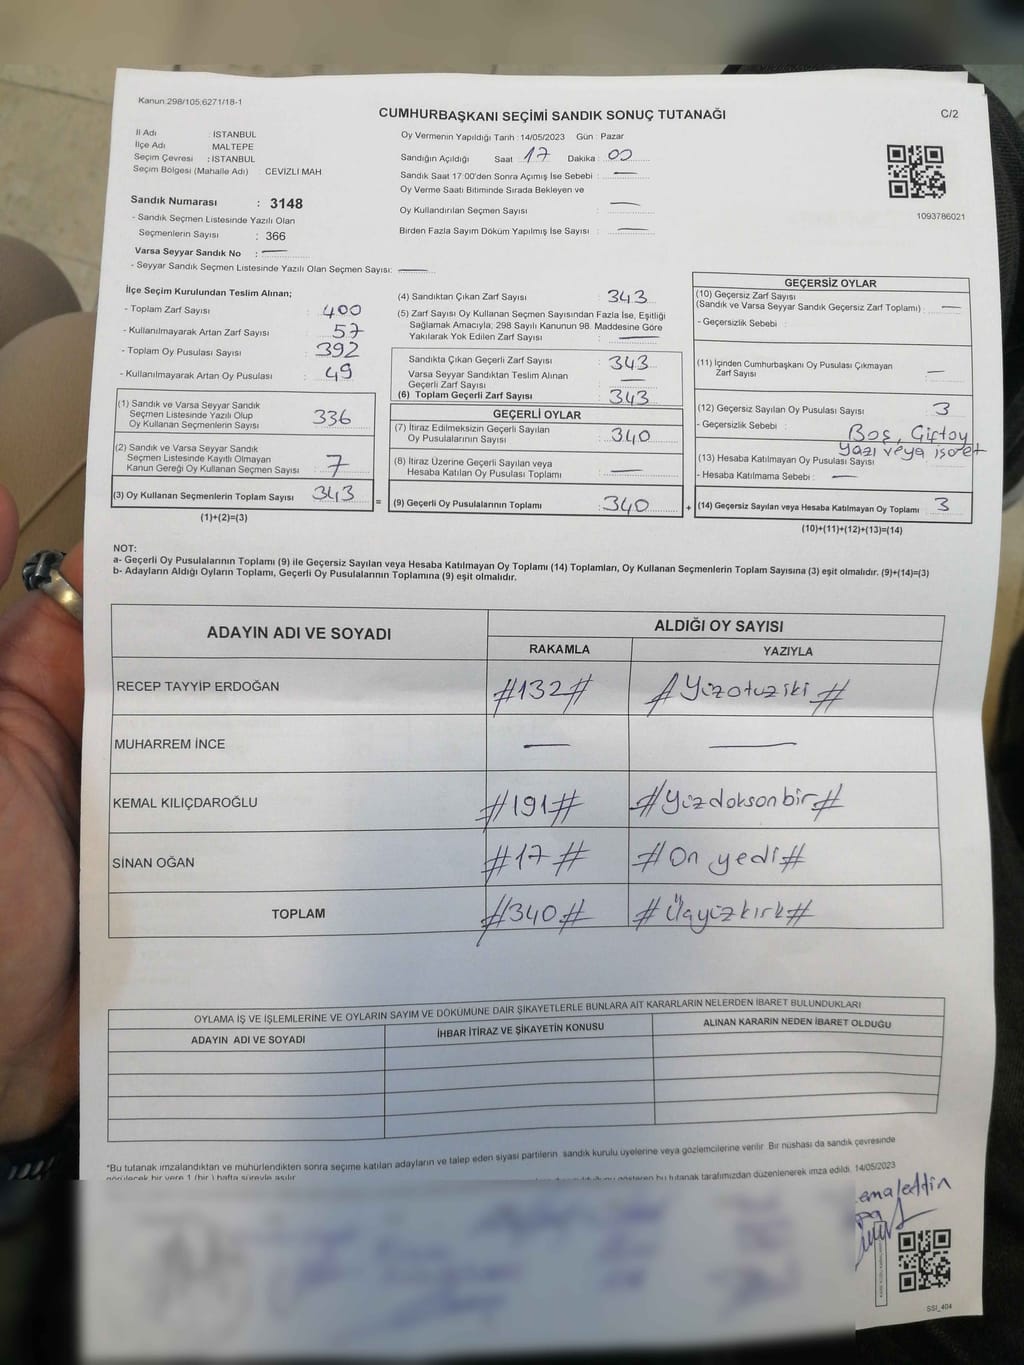 Kanun.298/105;6271/18-1
CUMHURBAŞKANI SEÇİMİ SANDIK SONUÇ TUTANAĞI
C/2
İl Adı : İSTANBUL
İlçe Adı : MALTEPE
Seçim Çevresi : İSTANBUL
Seçim Bölgesi (Mahalle Adı) : CEVİZLİ MAH
Sandık Numarası : 3148
- Sandık Seçmen Listesinde Yazılı Olan
Seçmenlerin Sayısı : 366
Varsa Seyyar Sandık No : —
- Seyyar Sandık Seçmen Listesinde Yazılı Olan Seçmen Sayısı: —
Oy Vermenin Yapıldığı Tarih :14/05/2023 Gün : Pazar
Sandığın Açıldığı Saat : 17 Dakika : 00
Sandık Saat 17:00'den Sonra Açımış İse Sebebi : —
Oy Verme Saati Bitiminde Sırada Bekleyen ve
Oy Kullandırılan Seçmen Sayısı : —
Birden Fazla Sayım Döküm Yapılmış İse Sayısı : —
1093786021
İlçe Seçim Kurulundan Teslim Alınan;
- Toplam Zarf Sayısı : 400
- Kullanılmayarak Artan Zarf Sayısı : 57
- Toplam Oy Pusulası Sayısı : 392
- Kullanılmayarak Artan Oy Pusulası : 49
(1) Sandık ve Varsa Seyyar Sandık
Seçmen Listesinde Yazılı Olup
Oy Kullanan Seçmenlerin Sayısı : 336
(2) Sandık ve Varsa Seyyar Sandık
Seçmen Listesinde Kayıtlı Olmayan
Kanun Gereği Oy Kullanan Seçmen Sayısı : 7
(3) Oy Kullanan Seçmenlerin Toplam Sayısı : 343 =
(1)+(2)=(3)
(4) Sandıktan Çıkan Zarf Sayısı : 343
(5) Zarf Sayısı Oy Kullanan Seçmen Sayısından Fazla İse, Eşitliği
Sağlamak Amacıyla; 298 Sayılı Kanunun 98. Maddesine Göre
Yakılarak Yok Edilen Zarf Sayısı : —
Sandıkta Çıkan Geçerli Zarf Sayısı : 343
Varsa Seyyar Sandıktan Teslim Alınan
Geçerli Zarf Sayısı : —
(6) Toplam Geçerli Zarf Sayısı : 343
GEÇERLİ OYLAR
(7) İtiraz Edilmeksizin Geçerli Sayılan
Oy Pusulalarının Sayısı : 340
(8) İtiraz Üzerine Geçerli Sayılan veya
Hesaba Katılan Oy Pusulalarının Toplamı : —
(9) Geçerli Oy Pusulalarının Toplamı : 340 +
GEÇERSİZ OYLAR
(10) Geçersiz Zarf Sayısı
(Sandık ve Varsa Seyyar Sandık Geçersiz Zarf Toplamı) : —
- Geçersizlik Sebebi :
(11) İçinden Cumhurbaşkanı Oy Pusulası Çıkmayan
Zarf Sayısı : —
(12) Geçersiz Sayılan Oy Pusulası Sayısı : 3
- Geçersizlik Sebebi : Boş, Çiftoy
yazı veya işaret
(13) Hesaba Katılmayan Oy Pusulası Sayısı :
- Hesaba Katılmama Sebebi : —
(14) Geçersiz Sayılan veya Hesaba Katılmayan Oy Toplamı : 3
(10)+(11)+(12)+(13)=(14)
NOT:
a- Geçerli Oy Pusulalarının Toplamı (9) ile Geçersiz Sayılan veya Hesaba Katılmayan Oy Toplamı (14) Toplamları, Oy Kullanan Seçmenlerin Toplam Sayısına (3) eşit olmalıdır. (9)+(14)=(3)
b- Adayların Aldığı Oyların Toplamı, Geçerli Oy Pusulalarının Toplamına (9) eşit olmalıdır.
ADAYIN ADI VE SOYADI ALDIĞI OY SAYISI
RAKAMLA YAZIYLA
RECEP TAYYİP ERDOĞAN #132# #Yüzotuziki#
MUHARREM İNCE — —
KEMAL KILIÇDAROĞLU #191# #Yüzdoksanbir#
SİNAN OĞAN #17# #On yedi#
TOPLAM #340# #Üçyüzkırk#
OYLAMA İŞ VE İŞLEMLERİNE VE OYLARIN SAYIM VE DÖKÜMÜNE DAİR ŞİKAYETLERLE BUNLARA AİT KARARLARIN NELERDEN İBARET BULUNDUKLARI
ADAYIN ADI VE SOYADI İHBAR İTİRAZ VE ŞİKAYETİN KONUSU ALINAN KARARIN NEDEN İBARET OLDUĞU
*Bu tutanak imzalandıktan ve mühürlendikten sonra seçime katılan adayların ve talep eden siyasi partilerin sandık kurulu üyelerine veya gözlemcilerine verilir. Bir nüshası da sandık çevresinde
görülecek bir yere 1 (bir) hafta süreyle asılır. gösteren bu tutanak tarafımızdan düzenlenerek imza edildi. 14/05/2023
emaleddin
SSI_404